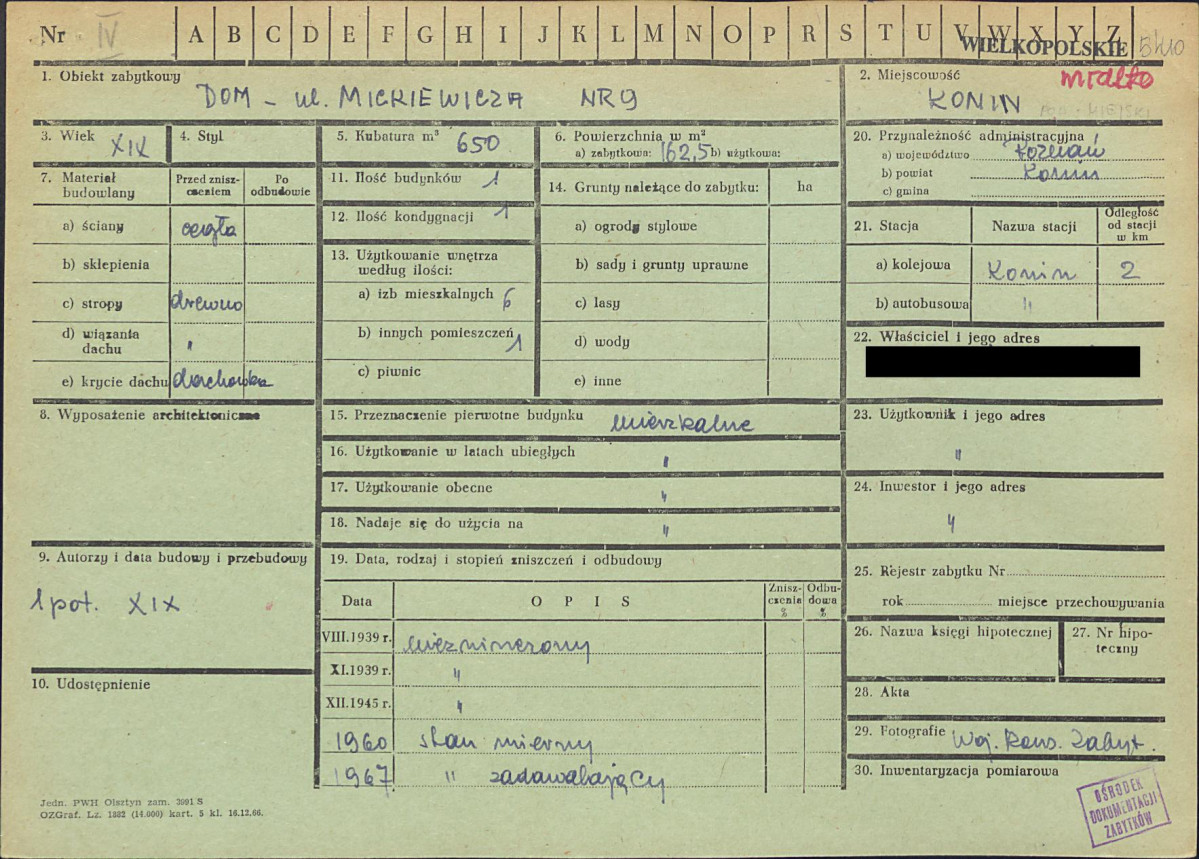 Nr IV A B C D E F G H I J K L M N O P R S T U V W X Y Z
WIELKOPOLSKIE
1. Obiekt zabytkowy
DOM - ul. MICKIEWICZA NR 9
2. Miejscowość
miasto
KONIN
3. Wiek XIX
4. Styl
5. Kubatura m³ 650
6. Powierzchnia w m²
a) zabytkowa: 162,5 b) użytkowa:
20. Przynależność administracyjna
a) województwo Poznań
b) powiat Konin
c) gmina
7. Materiał budowlany
Przed zniszczeniem
Po odbudowie
a) ściany cegła
b) sklepienia
c) stropy drewno
d) wiązania dachu "
e) krycie dachu dachówka
11. Ilość budynków 1
12. Ilość kondygnacji 1
13. Użytkowanie wnętrza
według ilości:
a) izb mieszkalnych 6
b) innych pomieszczeń 1
c) piwnic
14. Grunty należące do zabytku: ha
a) ogrody stylowe
b) sady i grunty uprawne
c) lasy
d) wody
e) inne
21. Stacja
Nazwa stacji
Odległość od stacji w km
a) kolejowa Konin 2
b) autobusowa "
22. Właściciel i jego adres
8. Wyposażenie architektoniczne
15. Przeznaczenie pierwotne budynku mieszkalne
16. Użytkowanie w latach ubiegłych "
17. Użytkowanie obecne "
18. Nadaje się do użycia na "
23. Użytkownik i jego adres
"
24. Inwestor i jego adres
"
9. Autorzy i data budowy i przebudowy
1 poł. XIX
10. Udostępnienie
19. Data, rodzaj i stopień zniszczeń i odbudowy
Data
OPIS
Zniszczenia %
Odbudowa %
VIII.1939 r. niezniszczony
XI.1939 r. "
XII.1945 r. "
1960 stan mierny
1967 " zadawalający
25. Rejestr zabytku Nr
rok miejsce przechowywania
26. Nazwa księgi hipotecznej
27. Nr hipoteczny
28. Akta
29. Fotografie Woj. Kons. Zabyt.
30. Inwentaryzacja pomiarowa
OŚRODEK
DOKUMENTACJI
ZABYTKÓW
Jedn. PWH Olsztyn zam. 3991 S
OZGraf. Lz. 1882 (14.000) kart. 5 kl. 16.12.66.